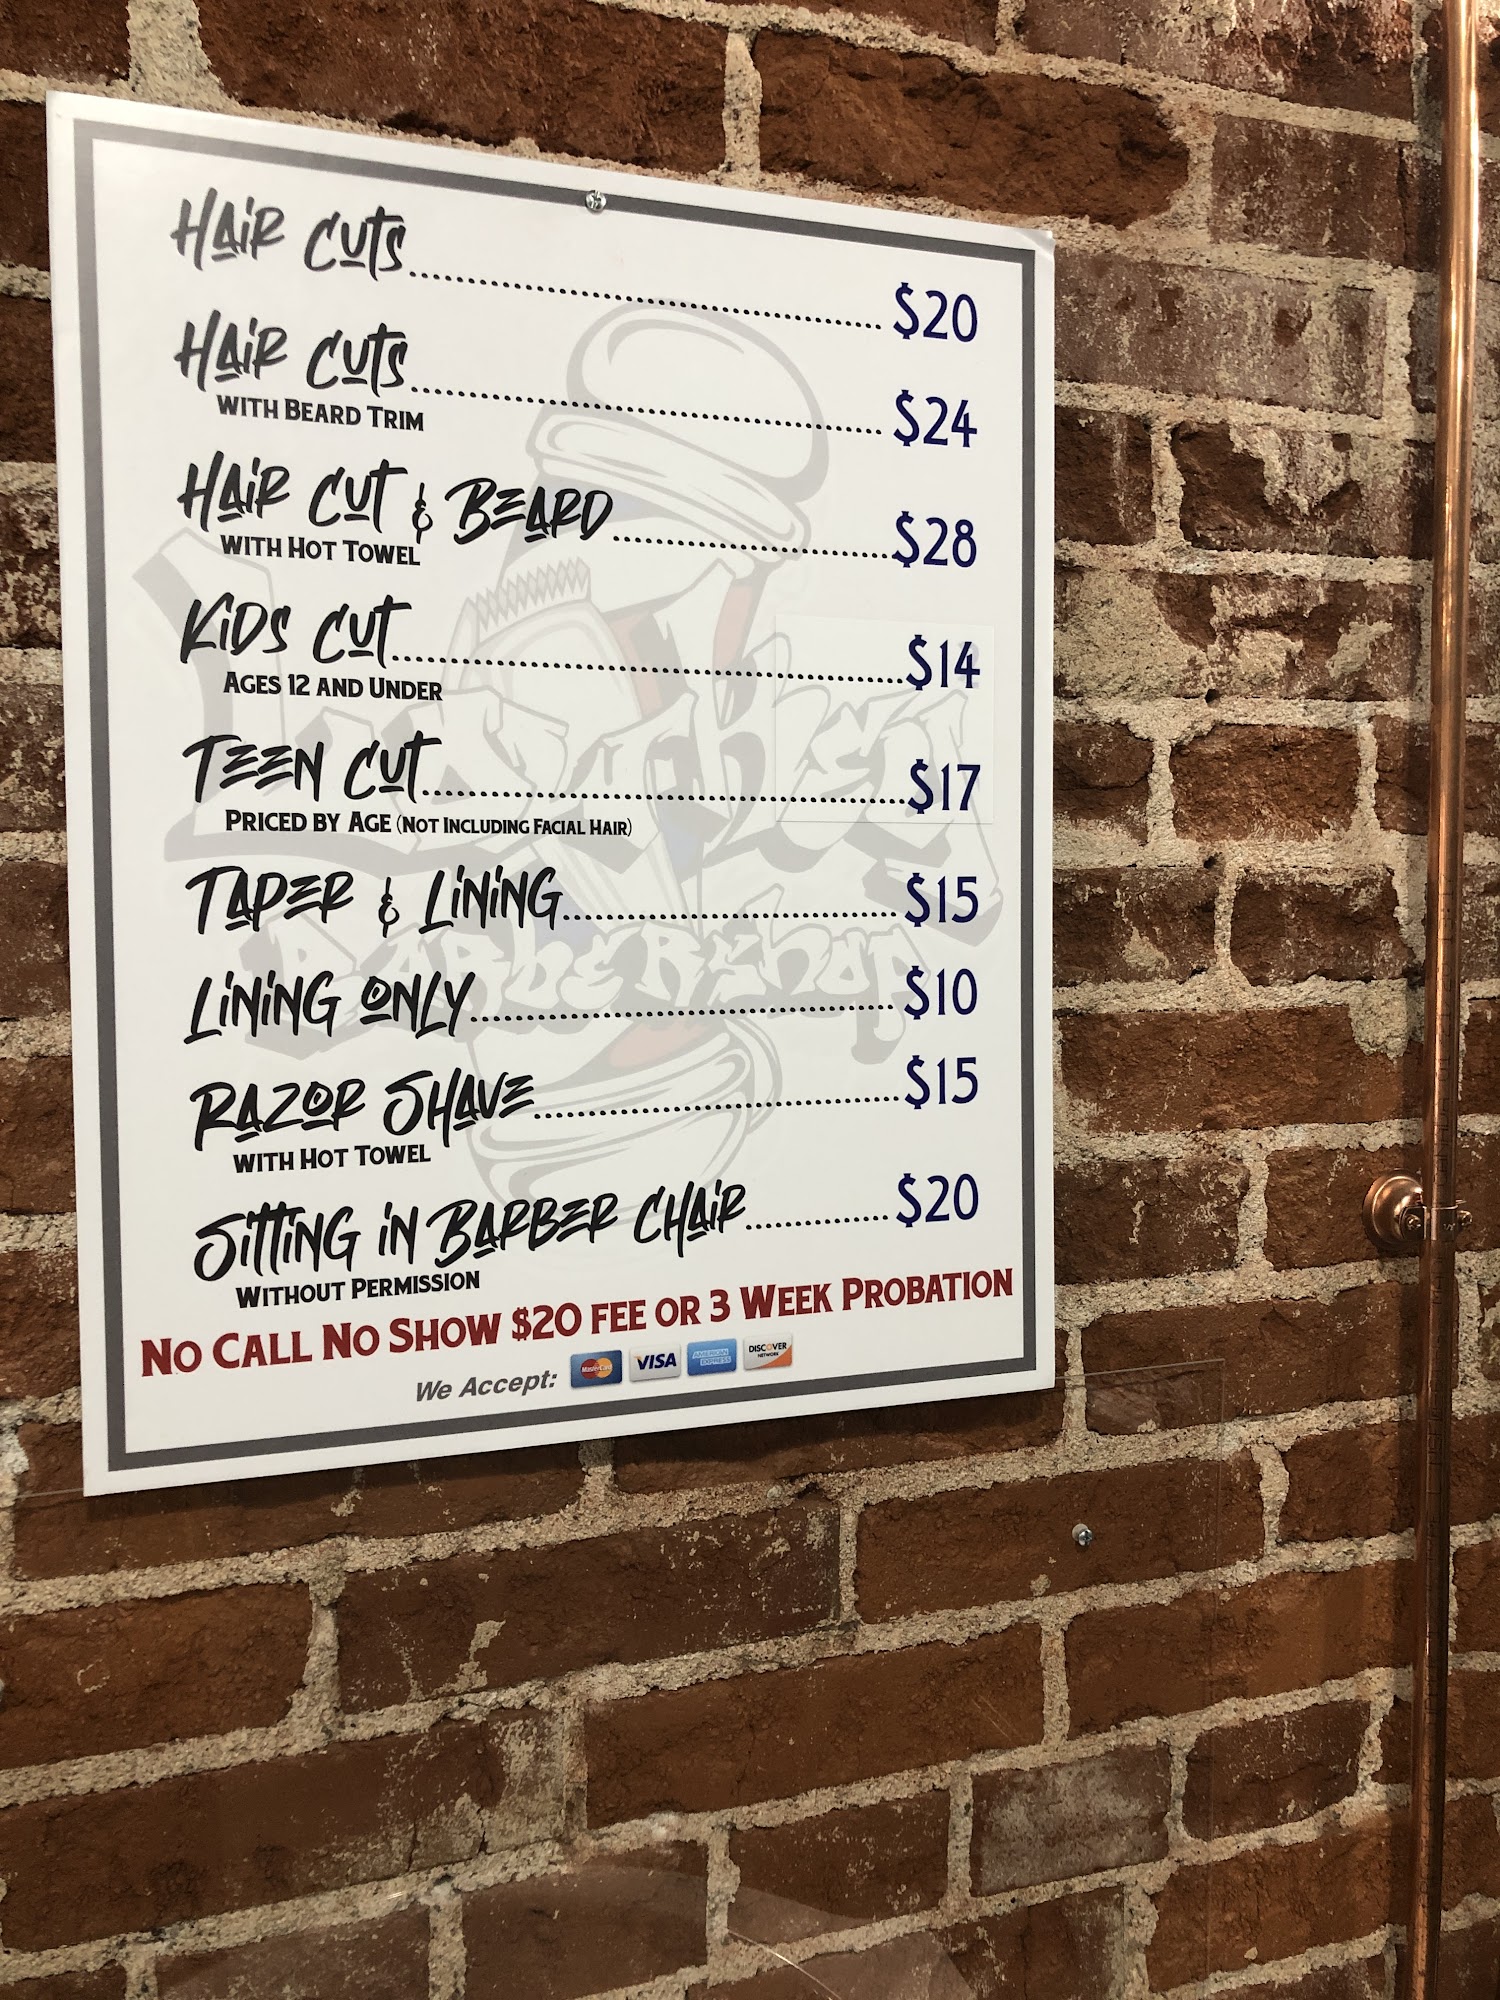 Hair Cuts.......... $20
Hair Cuts.......... $24
with Beard Trim
Hair Cut & Beard.......... $28
with Hot Towel
Kids Cut.......... $14
Ages 12 and Under
Teen Cut.......... $17
Priced by Age (Not Including Facial Hair)
Taper & Lining.......... $15
Lining Only.......... $10
Razor Shave.......... $15
with Hot Towel
Sitting in Barber Chair.......... $20
Without Permission
No Call No Show $20 fee or 3 Week Probation
We Accept: MasterCard VISA AMERICAN EXPRESS DISCOVER NETWORK
Barbershop